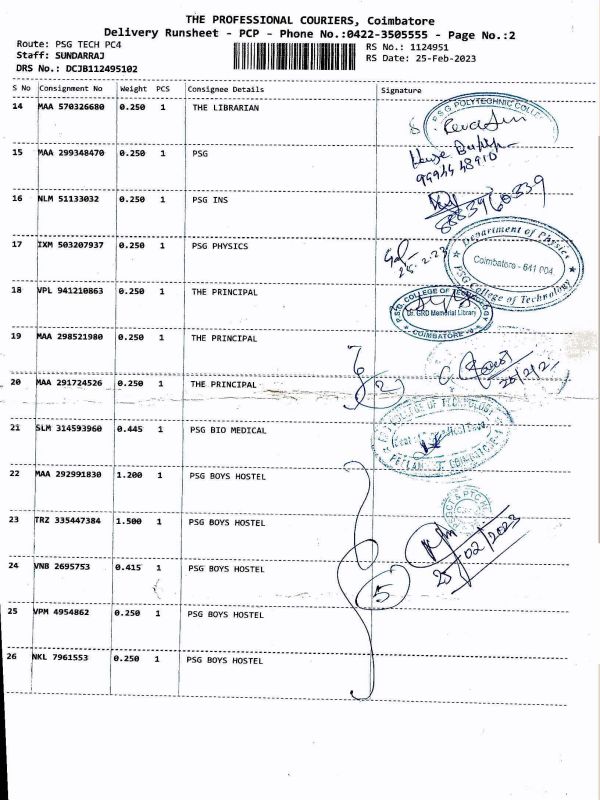 THE PROFESSIONAL COURIERS, Coimbatore
Delivery Runsheet - PCP - Phone No.:0422-3505555 - Page No.:2
Route: PSG TECH PC4 RS No.: 1124951
Staff: SUNDARRAJ RS Date: 25-Feb-2023
DRS No.: DCJB112495102
S No Consignment No Weight PCS Consignee Details Signature
14 MAA 570326680 0.250 1 THE LIBRARIAN
PSG POLYTECHNIC COLLEGE
15 MAA 299348470 0.250 1 PSG
16 NLM 51133032 0.250 1 PSG INS
8883960339
17 IXM 503207937 0.250 1 PSG PHYSICS
25.2.23
Department of Physics
Coimbatore - 641 004
PSG College of Technology
18 VPL 941210863 0.250 1 THE PRINCIPAL
P.S.G. COLLEGE OF TECHNOLOGY
Dr. GRD Memorial Library
COIMBATORE
19 MAA 298521980 0.250 1 THE PRINCIPAL
20 MAA 291724526 0.250 1 THE PRINCIPAL
2
21 SLM 314593960 0.445 1 PSG BIO MEDICAL
COLLEGE OF TECHNOLOGY
22 MAA 292991830 1.200 1 PSG BOYS HOSTEL
23 TRZ 335447384 1.500 1 PSG BOYS HOSTEL
25/02/2023
24 VNB 2695753 0.415 1 PSG BOYS HOSTEL
5
25 VPM 4954862 0.250 1 PSG BOYS HOSTEL
26 NKL 7961553 0.250 1 PSG BOYS HOSTEL